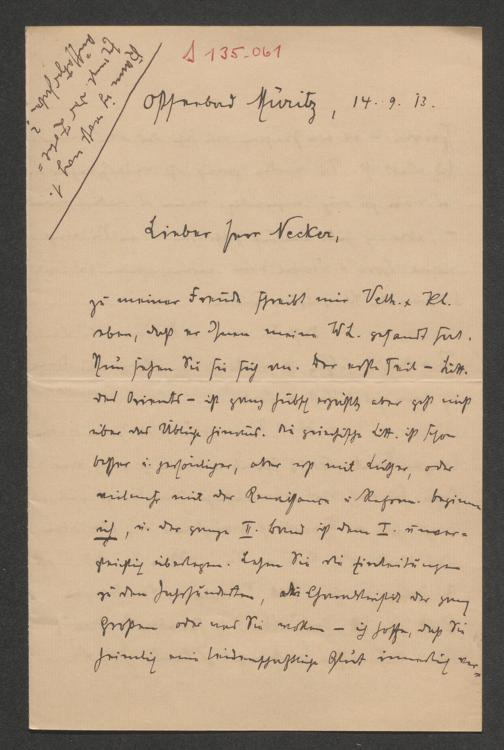 S 135-061
Ostseebad Müritz, 14. 9. 13.
Lieber Herr Necker,
zu meiner Freude schreibt mir Velh. & Kl.
eben, daß er Ihnen meine WL. gesandt hat.
Nun sehen Sie sie sich an. Der erste Teil – Litt.
des Orients – ist ganz hübsch erzählt, aber geht nicht
über das Übliche hinaus. Die griechische Litt. ist schon
besser u. persönlicher, aber erst mit Luther, oder
vielmehr mit der Renaissance u. Reform. beginne
ich, u. der ganze II. Band ist dem I. unver=
gleichlich überlegen. Lesen Sie die Einleitungen
zu den Jahrhunderten, die Charakteristik der ganz
Großen oder was Sie wollen – ich hoffe, daß Sie
heimlich eine leidenschaftliche Glut innerlich ver=